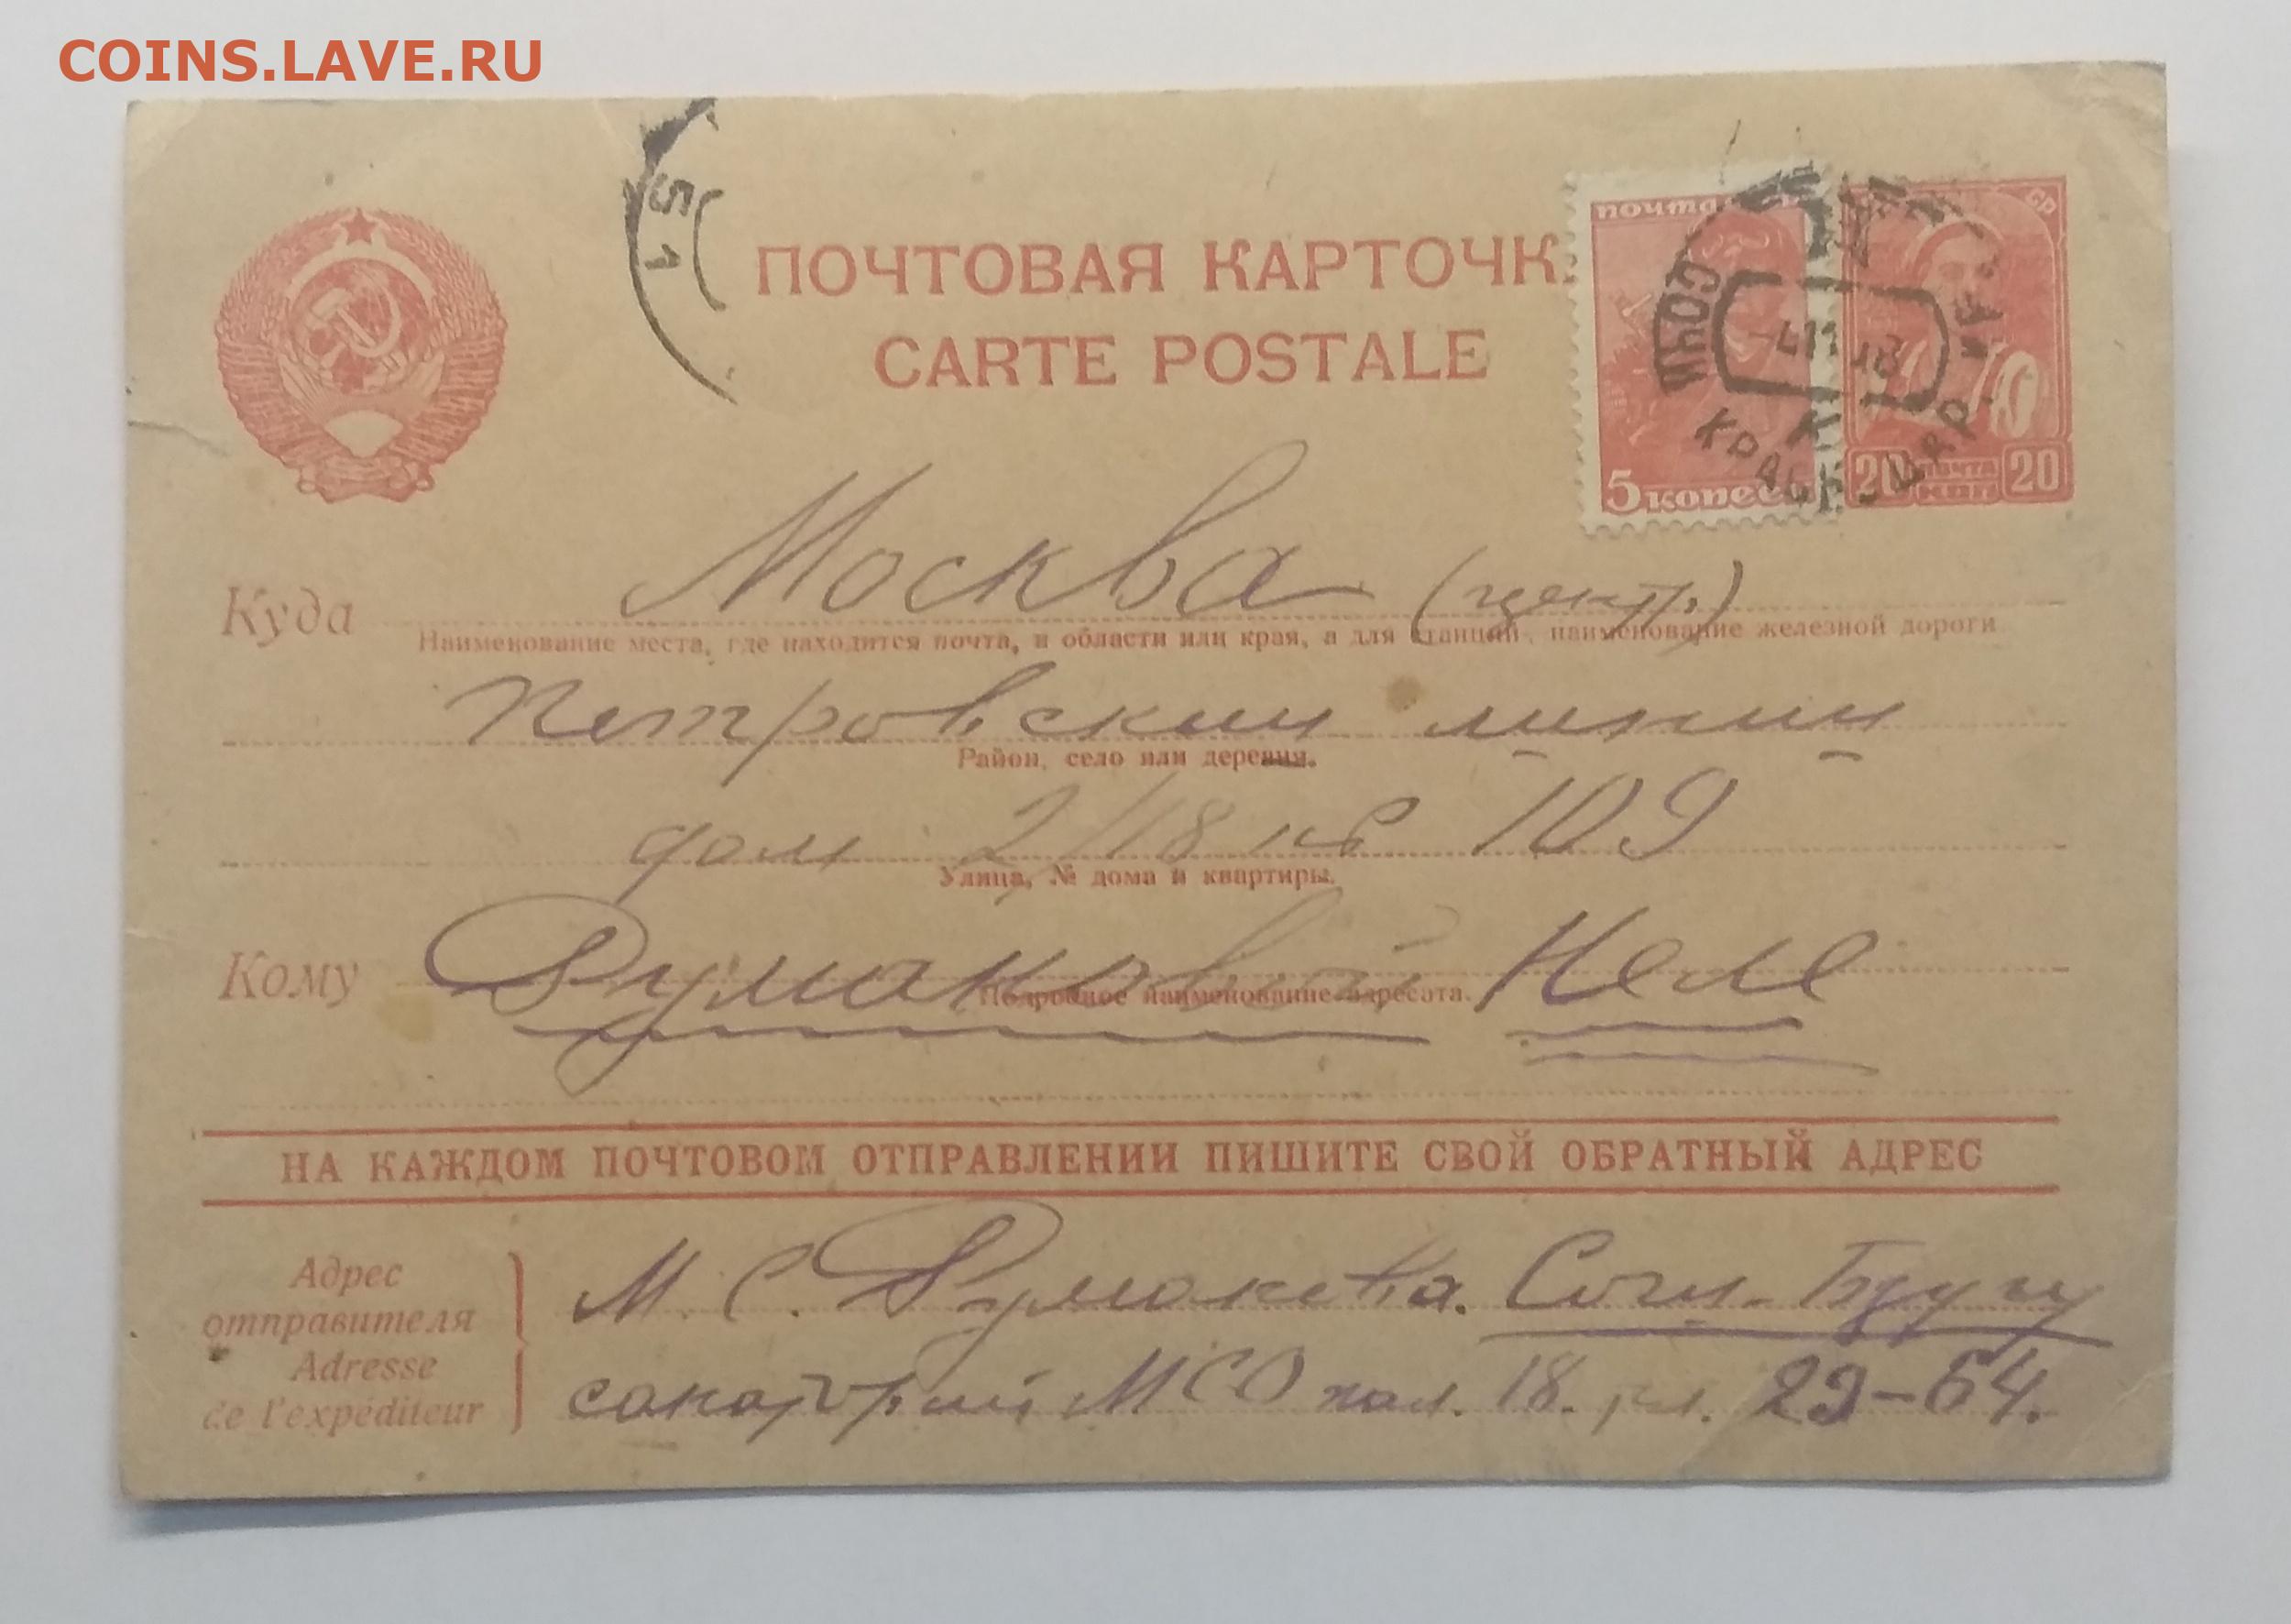 COINS.LAVE.RU
ПОЧТОВАЯ КАРТОЧК
CARTE POSTALE
почта
5 копеек
20 ПОЧТА 20
СОЧИ
КРАСНОДАР
Москва (центр.)
Куда
Наименование места, где находится почта, и области или края, а для станций, наименование железной дороги
Петровскии линии
Район, село или деревня.
дом 2/18 кв 109
Улица, № дома и квартиры.
Кому Румаковой Неле
Подробное наименование адресата.
НА КАЖДОМ ПОЧТОВОМ ОТПРАВЛЕНИИ ПИШИТЕ СВОЙ ОБРАТНЫЙ АДРЕС
Адрес
отправителя
Adresse
de l'expéditeur
М. С. Румакова. Сочи-
санаторий МСО пал. 18.